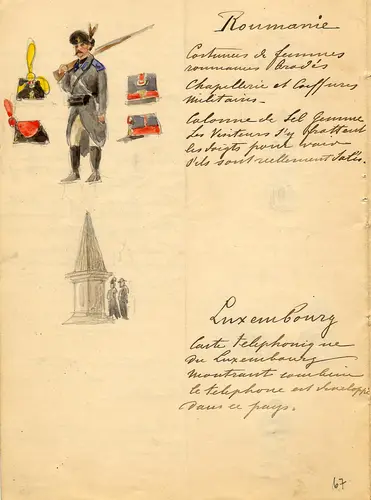 Roumanie
Costumes de femmes
roumaines Brodés
Chapellerie et Coiffures
Militaires.
Colonne de Sel Gemme
Les Visiteurs s'y frottent
les doigts pour voir
s'ils sont reellement Salés.
Luxembourg
Carte telephonique
du Luxembourg
montrant combien
le telephone est developpé
dans ce pays.
67